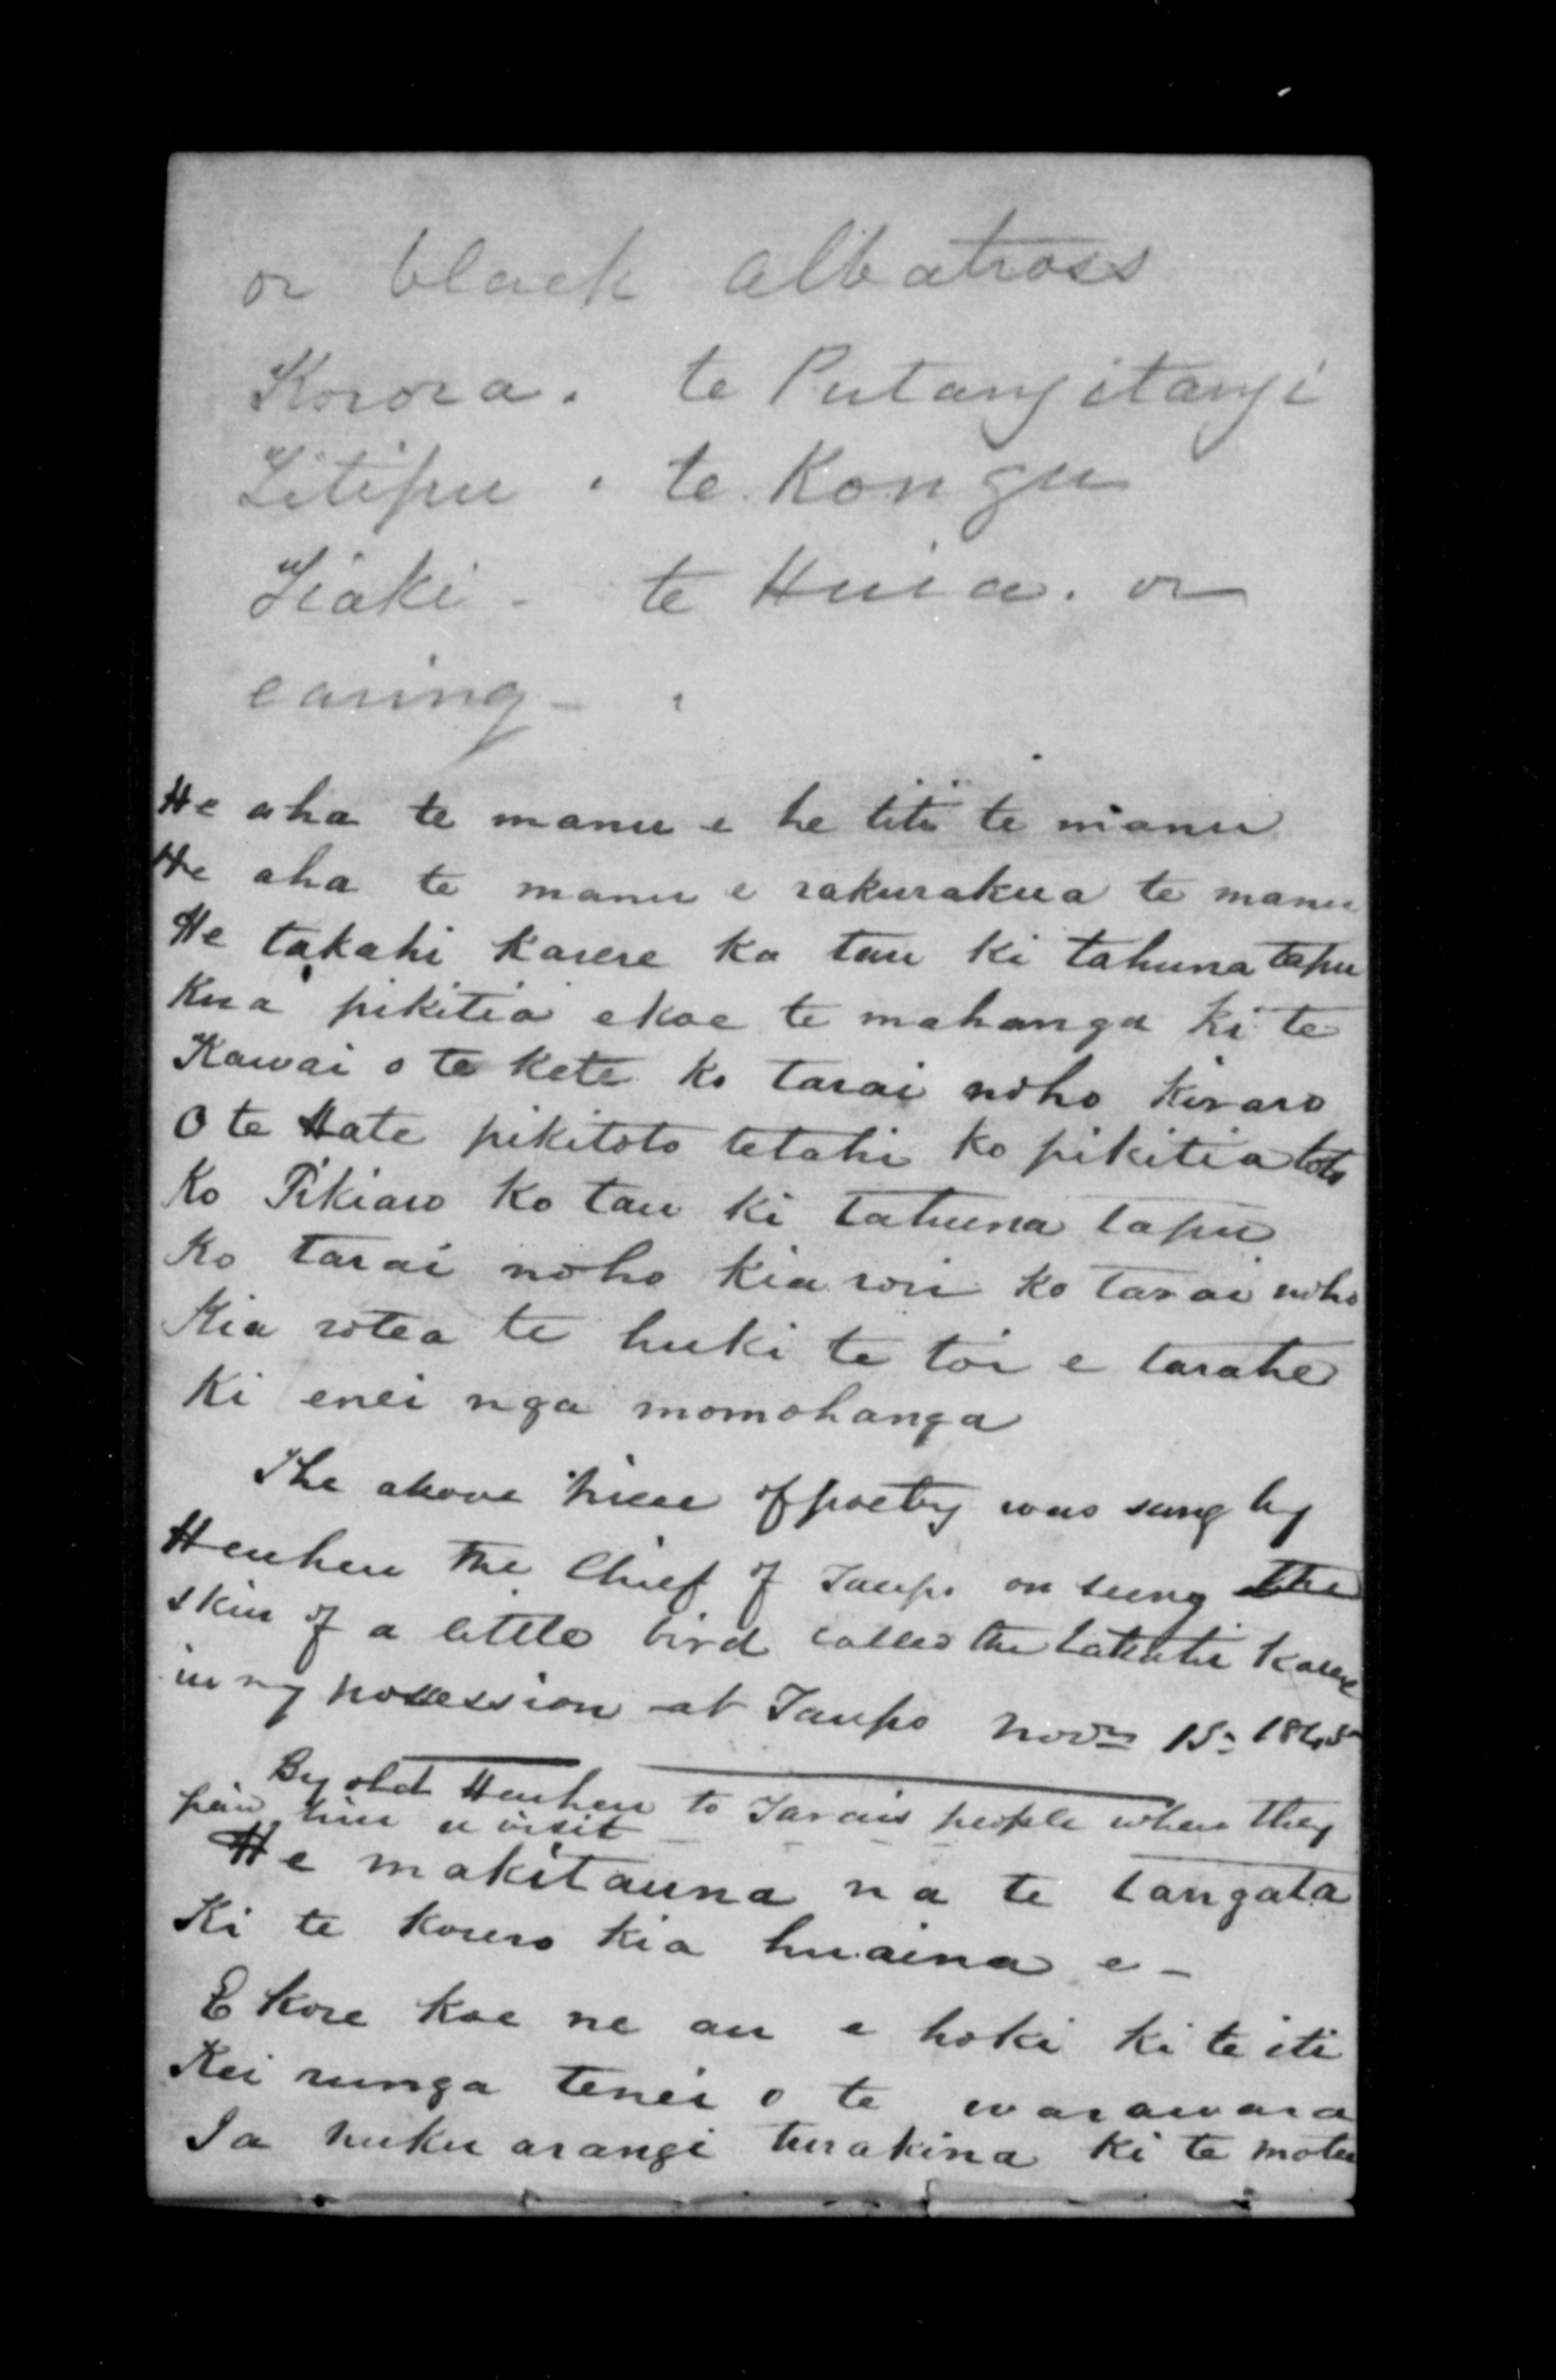 or black albatross
Korora. te Putangitangi
Titipu. te Kongu
Tiaki - te Huia. or
earing -
He aha te manu e he titi te manu
He aha te manu e rakurakua te manu
He takahi karere ka tau ki tahuna tapu
Kua pikitia ekoe te mahanga ki te
Kawai o te kete ko tarai noho kiraro
O te Hate pikitoto tetahi ko pikitia toto
Ko Pikiaro ko tau ki tahuna tapu
Ko tarai noho kia rori ko tarai noho
Kia rotea te huki te toi e tarahe
Ki enei nga momohanga
The above piece of poetry was sung by
Heuheu the Chief of Taupo on seeing the
skin of a little bird called the takahi karere
in my possession at Taupo Novr 15- 1845
By old Heuheu to Tarais people when they
paid him a visit
He makitauna na te tangata
Ki te korero kia huaina e -
E kore koe ne au e hoki ki te iti
Kei runga tenei o te warawara
Ia huku arangi turakina ki te motu